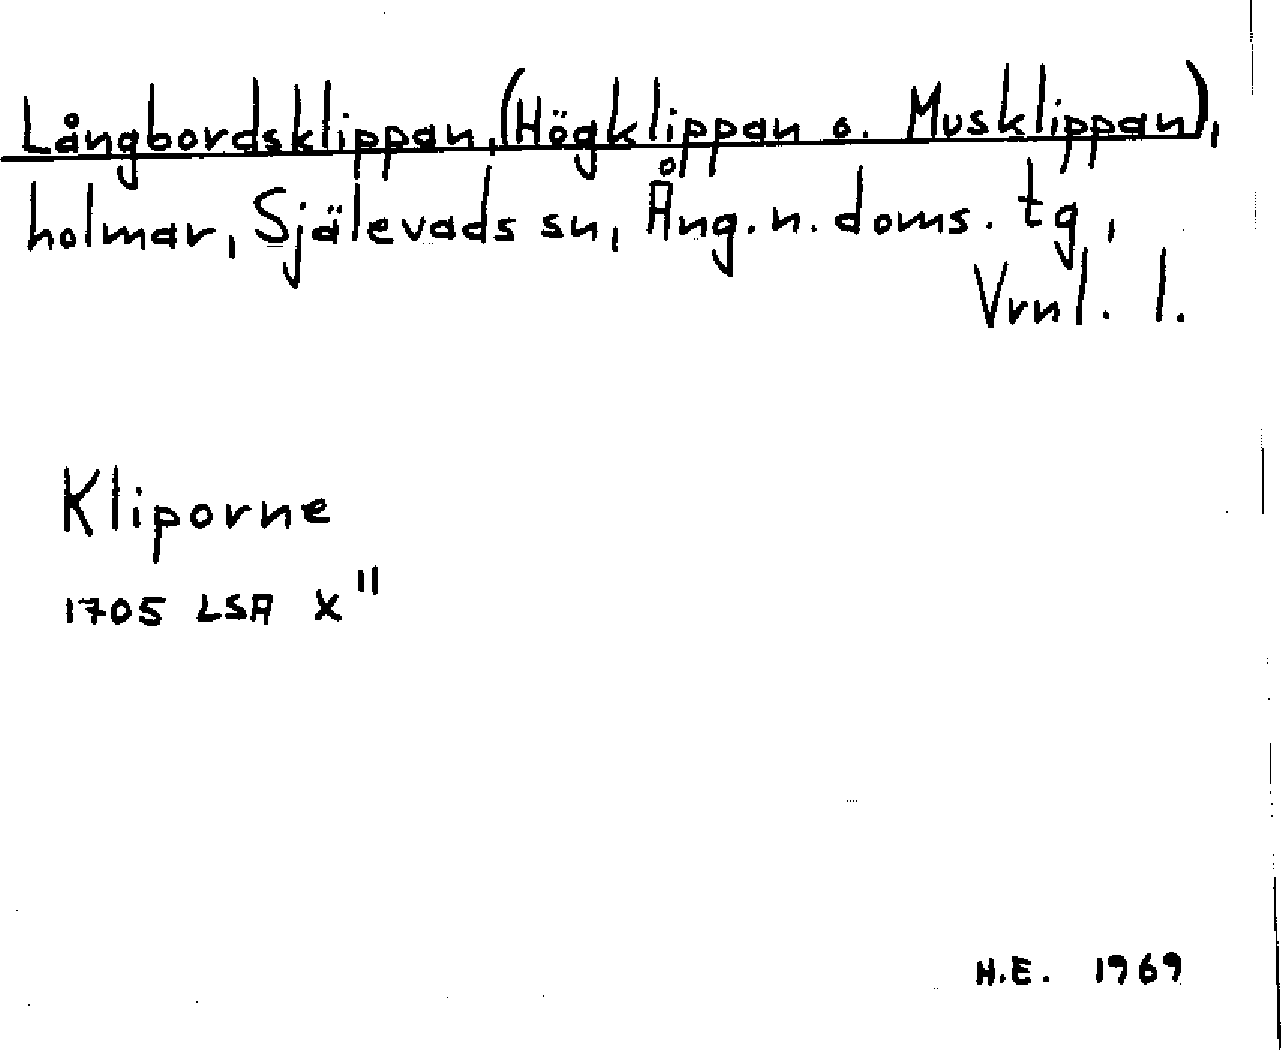 Långbordsklippan, (Högklippan o. Musklippan),
holmar, Själevads sn, Ång. n. doms. tg,
Vrnl. l.
Kliporne
1705 LSA X"
H.E. 1969